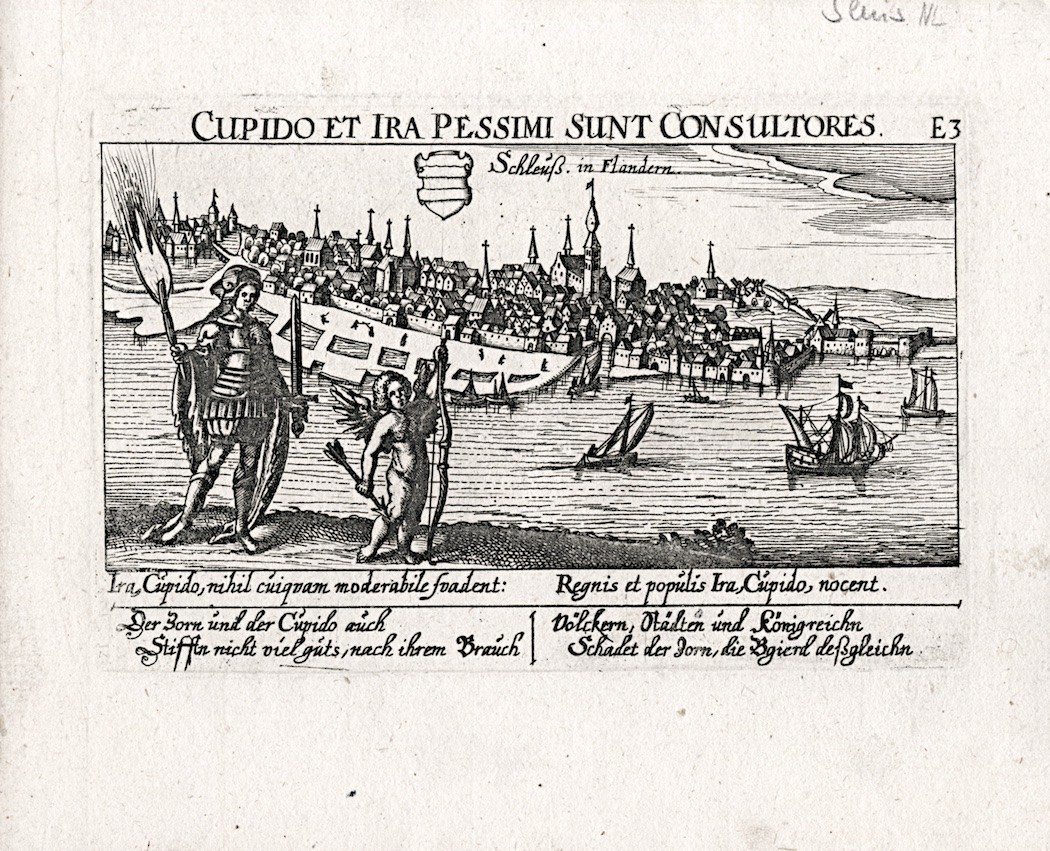 Sluis NL
CUPIDO ET IRA PESSIMI SUNT CONSULTORES. E3
Schleuß. in Flandern.
Ira, Cupido, nihil cuiqvam moderabile svadent: Regnis et populis Ira, Cupido, nocent.
Der Zorn und der Cupido auch
Stifftn nicht viel guts, nach ihrem Brauch
Völckern, Städten und Königreichn
Schadet der Zorn, die Bgierd deßgleichn.